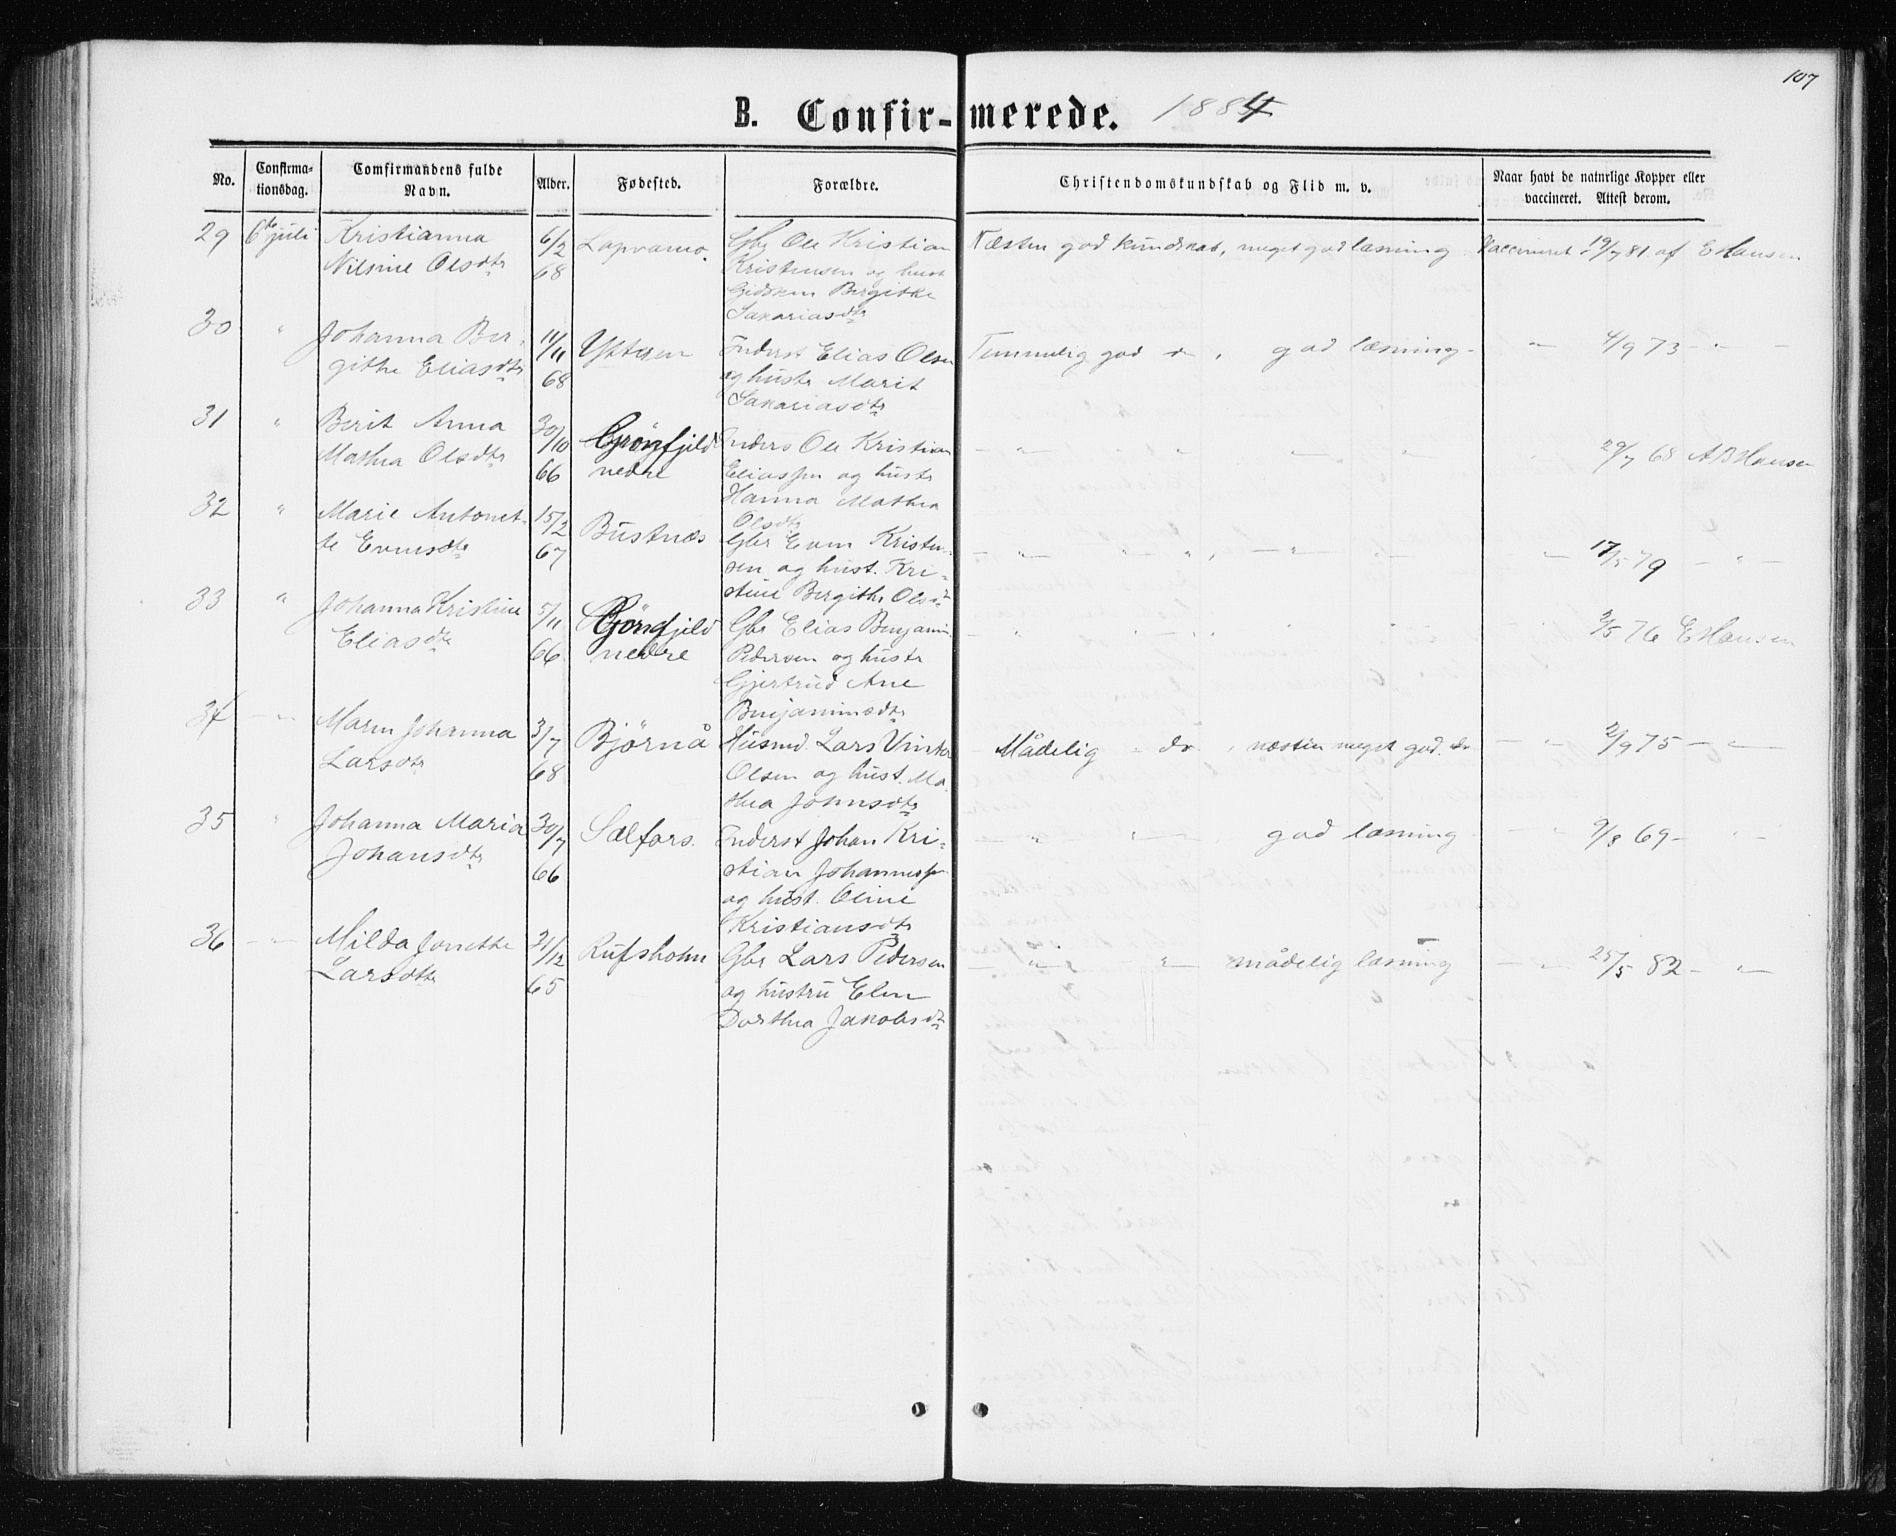 107
B. Confirmerede. 1884
No.
Confirma-
tionsdag.
Comfirmandens fulde
Navn.
Alder.
Fødested.
Forældre.
Christendomskundskab og Flid m. v.
Naar havt de naturlige Kopper eller
vaccineret. Attest derom.
29 6te juli Kristianna 6/2 Gbr Ole Kristian Næsten god kundskab, meget god læsning Vaccineret 19/7 81 af E Hansen
Nilsine Olsdtr 68 Kristensen og hust
Bergitke
Sakariasdtr
30 " Johanna Ber- 11/11 Ytteren Inderst Elias Olsen Temmelig god do, god læsning - " 4/9 73 - " -
githe Eliasdtr 68 og hustr Marit
Sakariasdtr
31 " Berit Anna 30/10 Grönfjeld Inders Ole Kristian - " - " - " - " 29/7 68 AB Hansen
Mathea Olsdtr 66 nedre Eliassen og hustr
Hanna Mathea
Olsdtr
32 " Marie Antonet- 15/2 Bustnæs Gbr Even Kristen- - " - " - " - " 17/5 79 - " -
te Evensdtr 67 sen og hust. Kri-
stine Bergithe Olsdtr
33 " Johanna Kristine 5/11 Grönfjeld Gbr Elias Benjamin - " - " - " - 2/5 76 E Hansen
Eliasdtr 66 nedre Pedersen og hustr
Gjertrud Ane
Benjaminsdtr
34 - " - Maren Johanna 3/7 Bjørnå Husmd. Lars Olsen Mådelig - do, næsten meget god do - " 2/9 75 - " -
Larsdtr 68 og hust. Ma-
thea Johnsdtr
35 " Johanna Maria 30/7 Sælfors. Inderst Johan Kri- - " - " - god læsning - " 9/8 69 - " -
Johansdtr 66 stian Johannessen
og hust. Oline
Kristiansdtr
36 - " - Milda Jonette 21/12 Rufsholm Gbr Lars Pedersen - " - " - mådelig læsning - " - 25/5 82 - " -
Larsdtr 65 og hustru Elen
Dorthea Jakobsdtr